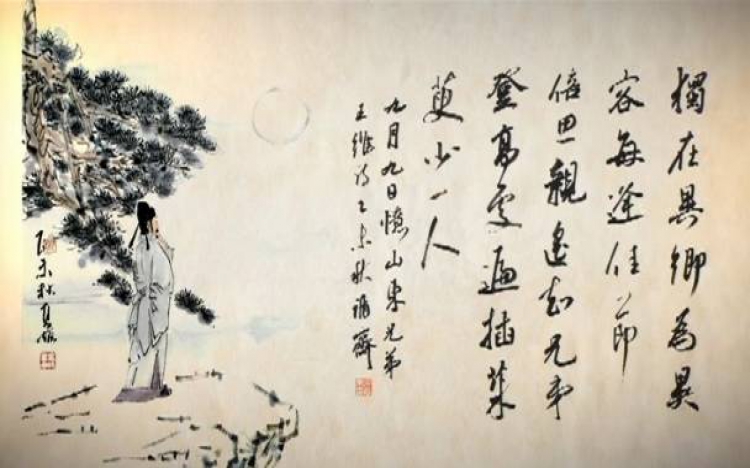 獨在異鄉為異
客每逢佳節
倍思親遙知兄弟
登高處遍插茱
萸少一人
九月九日憶山東兄弟
王維詩乙未秋
未秋